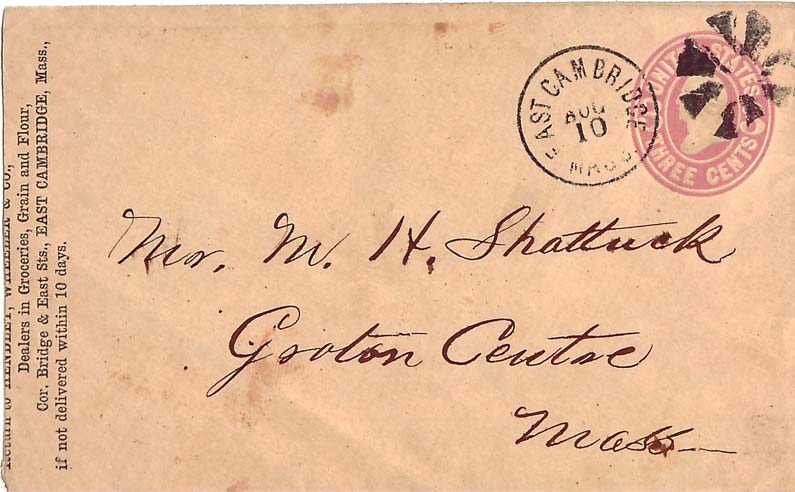 Return to HENDLEY, WHEELER & CO.,
Dealers in Groceries, Grain and Flour,
Cor. Bridge & East Sts., EAST CAMBRIDGE, Mass.,
if not delivered within 10 days.
EAST CAMBRIDGE
AUG
10
MASS.
UNITED STATES
THREE CENTS
Mr. M. H. Shattuck
Groton Centre
Mass